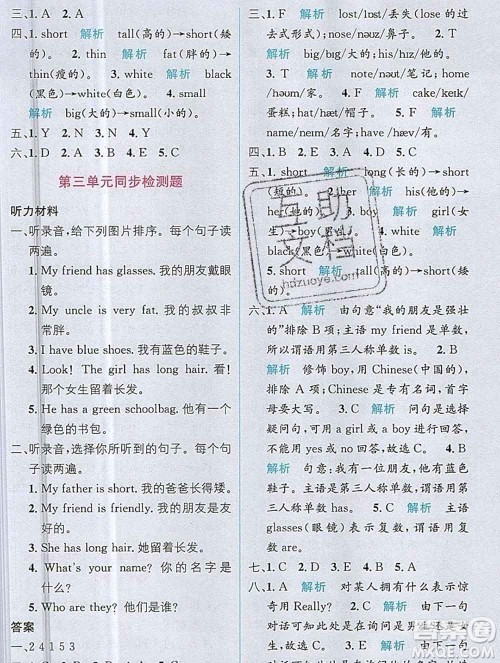 三、1. A  2. A
四、1. short  解析  tall(高的)→short(矮的)  2. thin  解析  fat(胖的)→thin(瘦的)  3. white  解析  black(黑色)→white(白色)  4. small
解析  big(大的)→small(小的)
五、1. Y  2. N
六、1. D  2. A  3. B  4. E  5. C
第三单元同步检测题
听力材料
一、听录音,给下列图片排序。每个句子读两遍。
1. My friend has glasses. 我的朋友戴眼镜。
2. My uncle is very fat. 我的叔叔非常胖。
3. I have blue shoes. 我有蓝色的鞋子。
4. Look! The girl has long hair. 看!那个女生留着长发。
5. He has a green schoolbag. 他有一个绿色的书包。
二、听录音,选择你所听到的句子。每个句子读两遍。
1. My father is short. 我的爸爸长得矮。
2. My friend is friendly. 我的朋友是友好的。
3. She has long hair. 她留着长发。
4. What's your name? 你的名字是什么?
5. Who are they? 他们是谁?
答案
一、2 4 1 5 3
三、1. F  解析  lost/lɒst/丢失(lose的过去式形式);nose/nəʊz/鼻子。
2. T
解析  big/bɪg/大的;his/hɪz/他的。
3. T  解析  note/nəʊt/笔记;home/həʊm/家。
4. F  解析  cake/keɪk/蛋糕;hat/hæt/帽子。
四、1. C  2. A  3. B  4. E  5. D
五、1. short  解析  long(长的)→short(短的)
2. her  解析  his(他的)→her(她的)
3. boy  解析  girl(女生)→boy(男生)
4. white  解析  black(黑色)→white(白色)
5. short  解析  tall(高的)→short(矮的)
六、1. A  解析  由句意“我的朋友是强壮的”排除B项;主语my friend是单数,所以谓语用第三人称单数is。
2. C
解析  修饰boy,用Chinese(中国的,中国人的),Chinese是专有名词,首字母要大写。
3. C  解析  问句是选择疑问句,可用a girl或a boy回答,不能用yes或no回答,故选C。
4. B
解析  句意:我的爸爸有一台电脑。主语是第三人称单数,谓语动词用第三人称单数has。
5. C  解析  主语glasses(眼镜)是复数,故谓语用复数are。
七、1. C  2. D  3. B  4. A
八、1. A  解析  对某人拥有什么表示惊奇用Really?。
2. C  解析  由下一句
互助文档
hdzuoye.com
作业帮
MXQE.COM